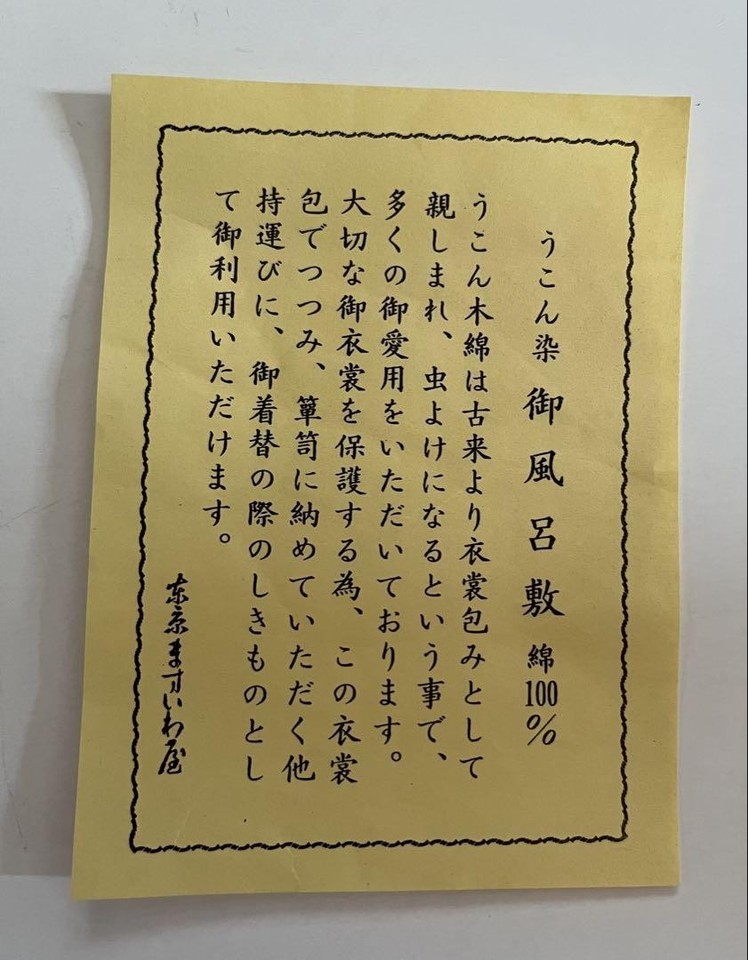 うこん染 御風呂敷 綿100%
うこん木綿は古来より衣裳包みとして
親しまれ、虫よけになるという事で、
多くの御愛用をいただいております。
大切な御衣裳を保護する為、この衣裳
包でつつみ、簞笥に納めていただく他
持運びに、御着替の際のしきものとし
て御利用いただけます。
東京ますいわ屋